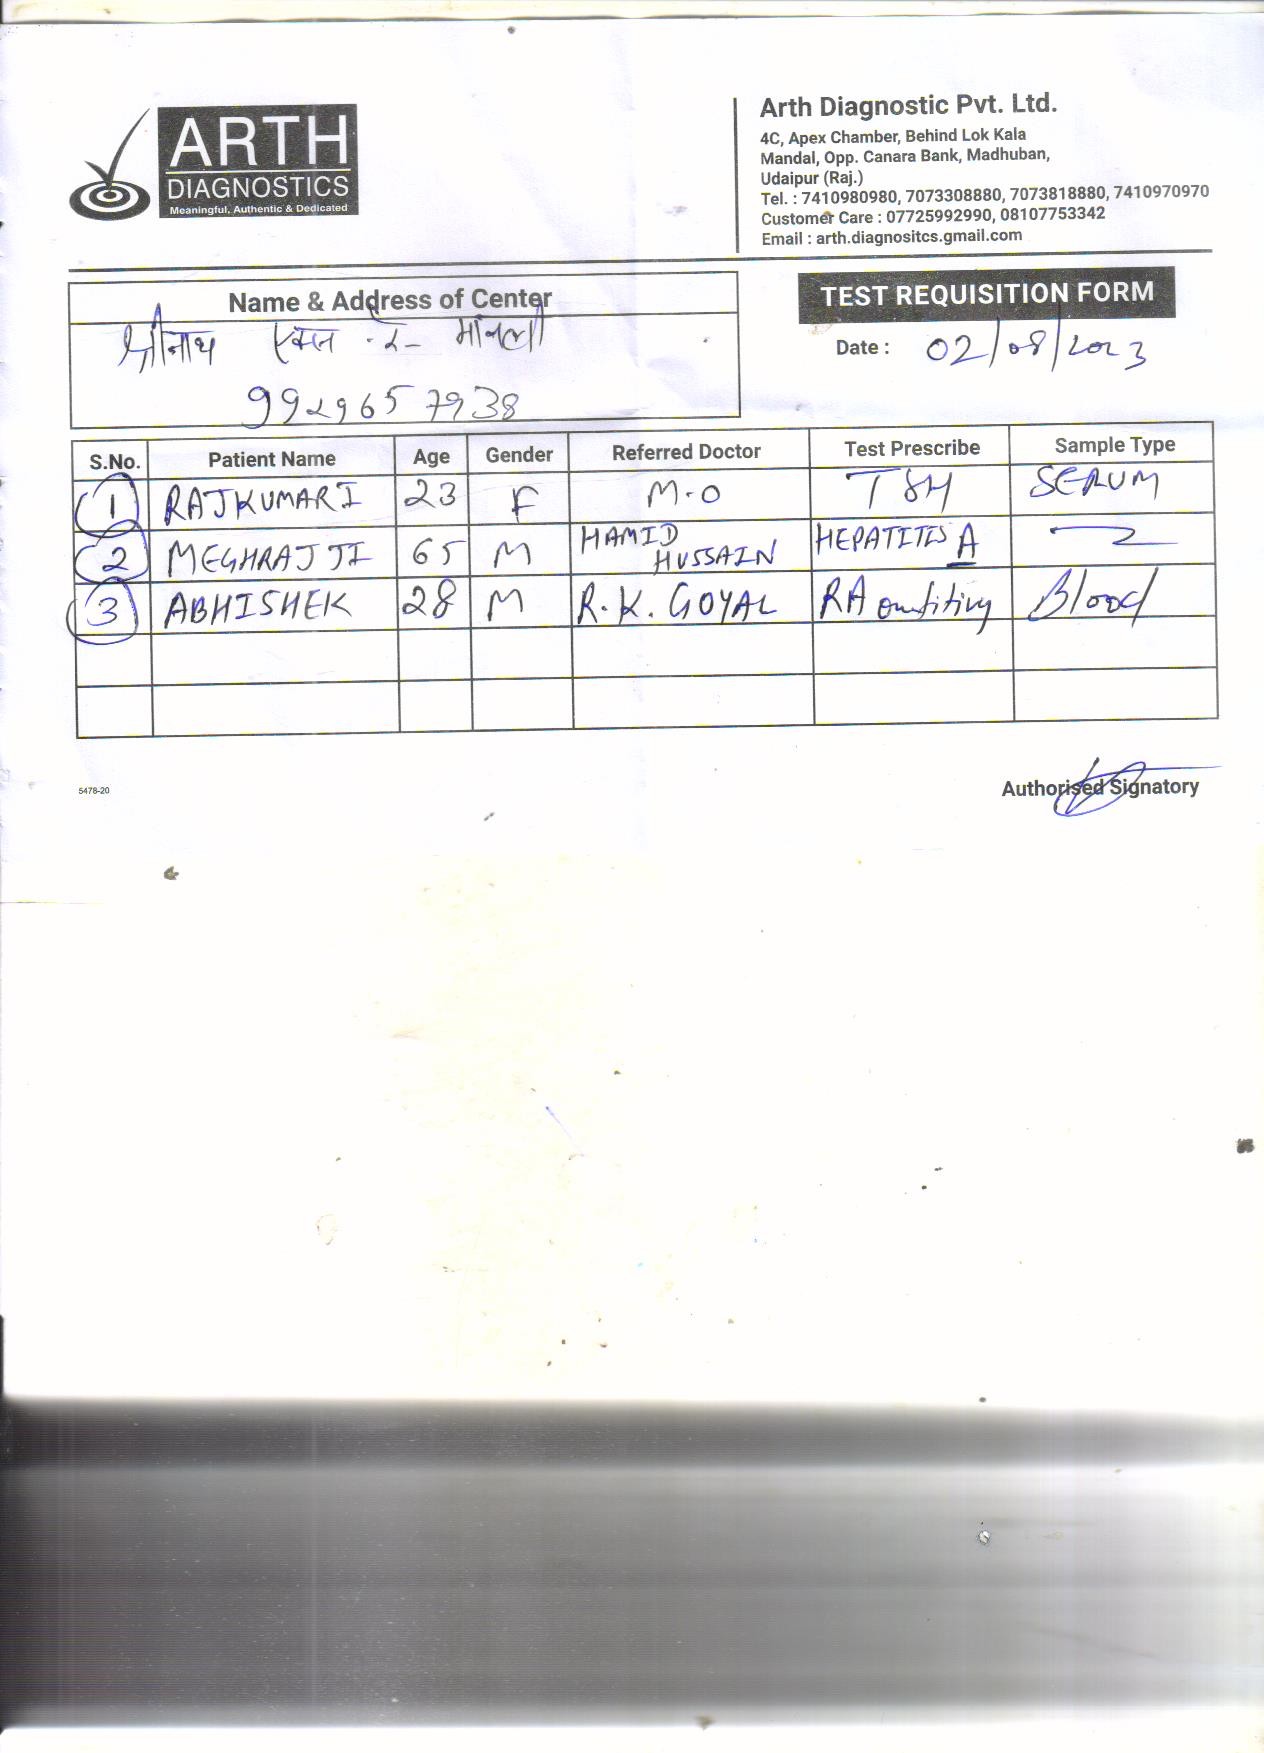 ARTH
DIAGNOSTICS
Meaningful, Authentic & Dedicated
Arth Diagnostic Pvt. Ltd.
4C, Apex Chamber, Behind Lok Kala
Mandal, Opp. Canara Bank, Madhuban,
Udaipur (Raj.)
Tel. : 7410980980, 7073308880, 7073818880, 7410970970
Customer Care : 07725992990, 08107753342
Email : arth.diagnositcs.gmail.com
Name & Address of Center
श्रीनाथ
9929657938
TEST REQUISITION FORM
Date : 02/08/2023
S.No. Patient Name Age Gender Referred Doctor Test Prescribe Sample Type
1 RAJKUMARI 23 F M.O TSH SERUM
2 MEGHRAJ JI 65 M HAMID HUSSAIN HEPATITIS A
3 ABHISHEK 28 M R.K. GOYAL RA Blood
5478-20
Authorised Signatory